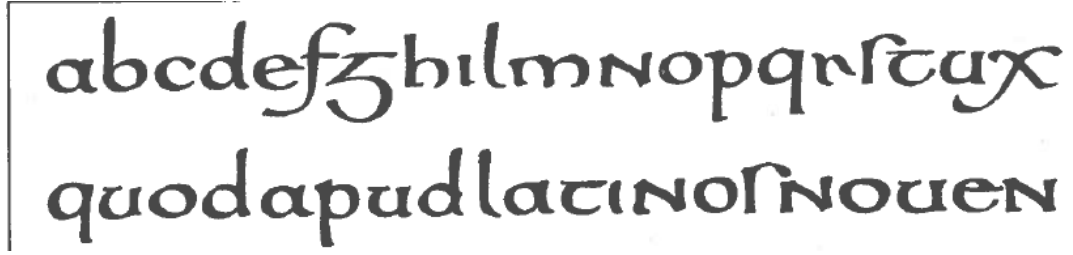 abcdefghilmnopqrſtux
quod apud latinoſ nouen